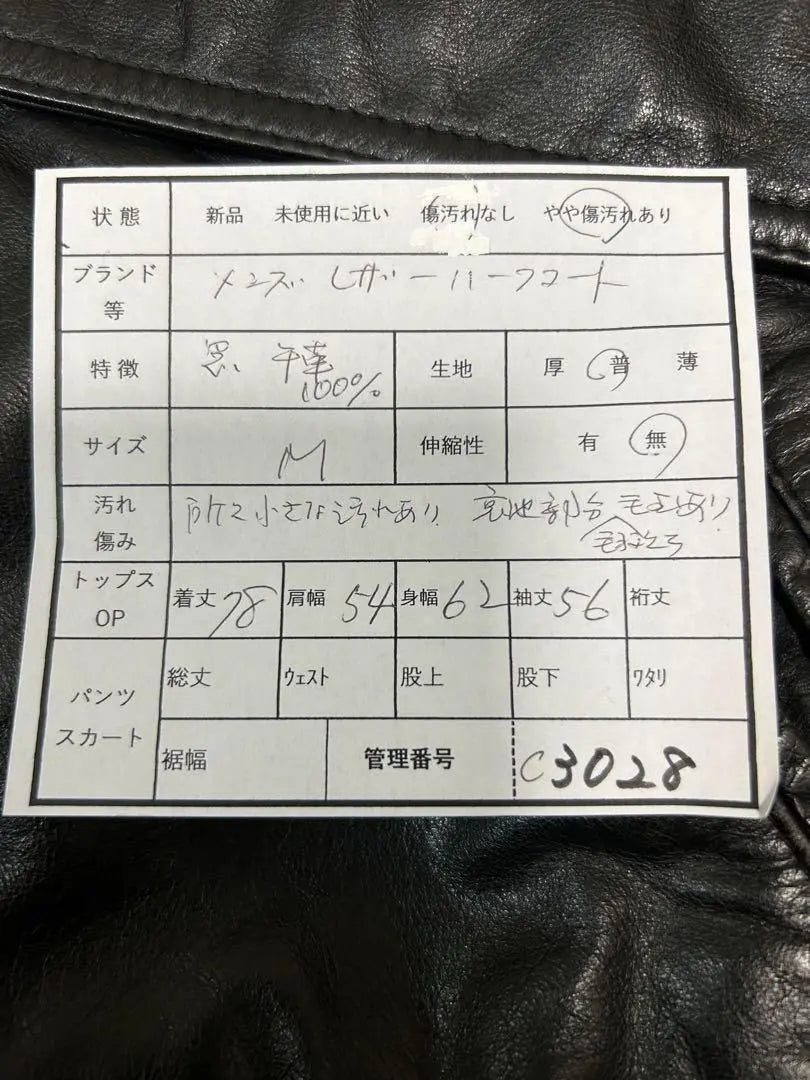 状態 新品 未使用に近い 傷汚れなし やや傷汚れあり
ブランド等 メンズ レザーハーフコート
特徴 黒、牛革100% 生地 厚 普 薄
サイズ M 伸縮性 有 無
汚れ傷み 所々小さな汚れあり 裏地部分 毛玉あり
トップスOP 着丈 78 肩幅 54 身幅 62 袖丈 56 裄丈
パンツスカート 総丈 ウェスト 股上 股下 ワタリ
裾幅 管理番号 C3028